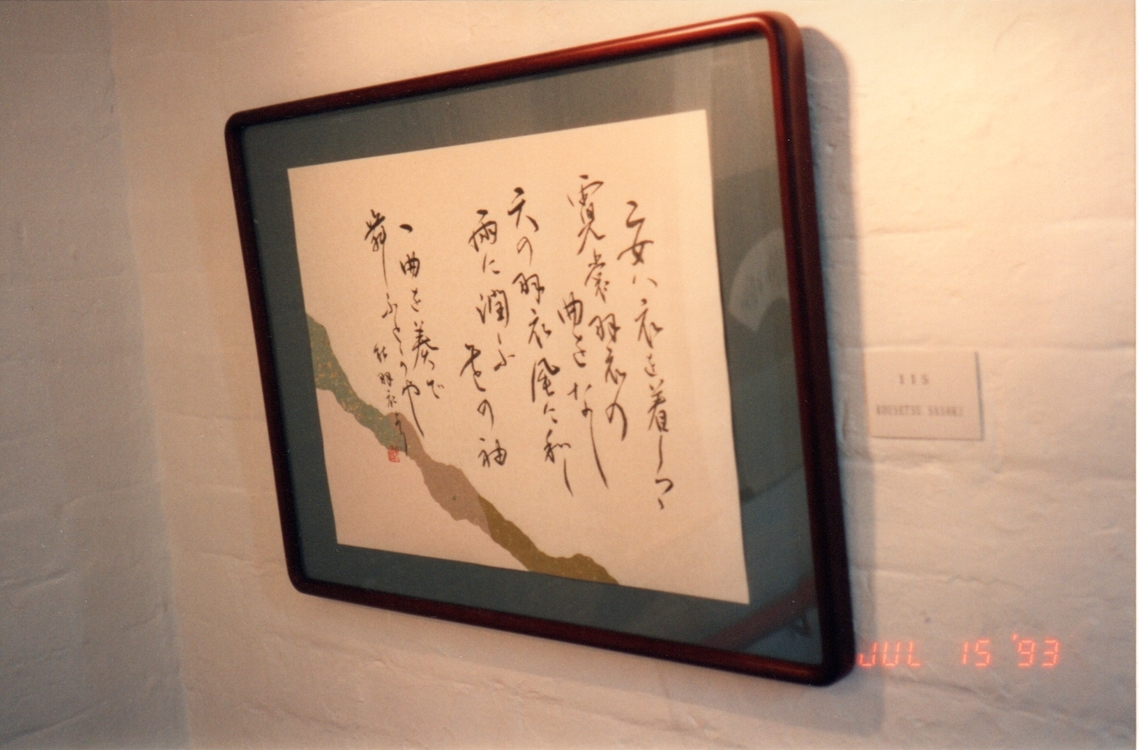 乙女ハ衣を着しつゝ
霓裳羽衣の
曲をなし
天の羽衣風に和し
雨に潤ふ花の袖
一曲を奏で
舞ふとかや
能羽衣より
115
KOUSETSU SASAKI
JUL 15 '93